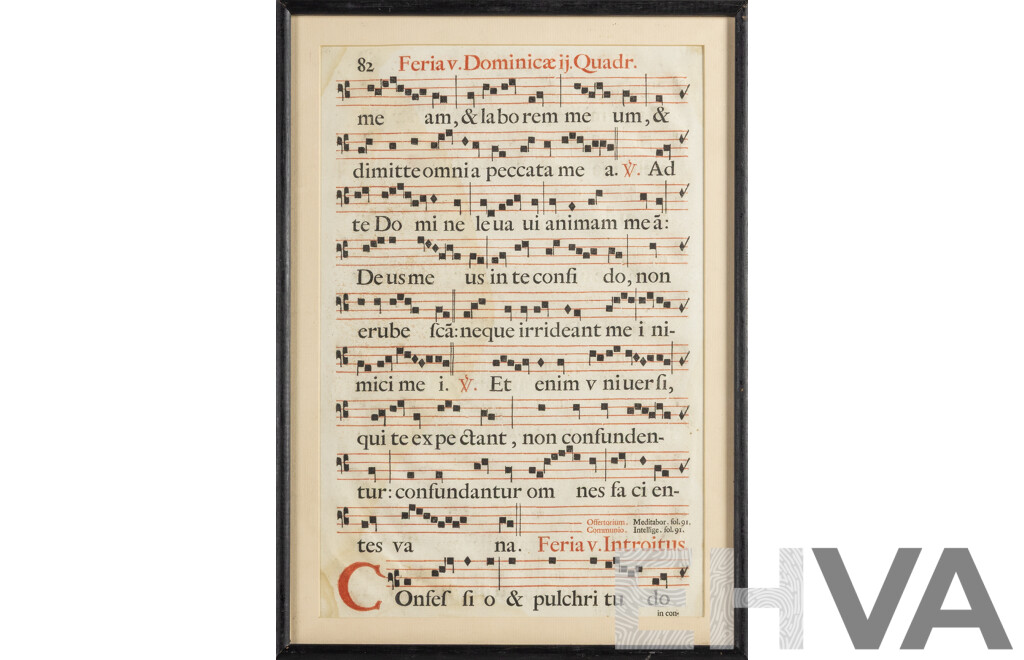 82 Feria v. Dominicæ ij. Quadr.
me am, & laborem meum, &
dimitte omnia peccata mea. ℣. Ad
te Domine leuaui animam meā:
Deus meus in te confido, non
erubeſcā: neque irrideant me ini-
mici mei. ℣. Etenim vniuerſi,
qui te expectant, non confunden-
tur: confundantur omnes facien-
tes vana.
Offertorium. Meditabor. fol. 91.
Communio. Intellige. fol. 91.
Feria v. Introitus
COnfeſſio & pulchritudo
in con-
EHVA